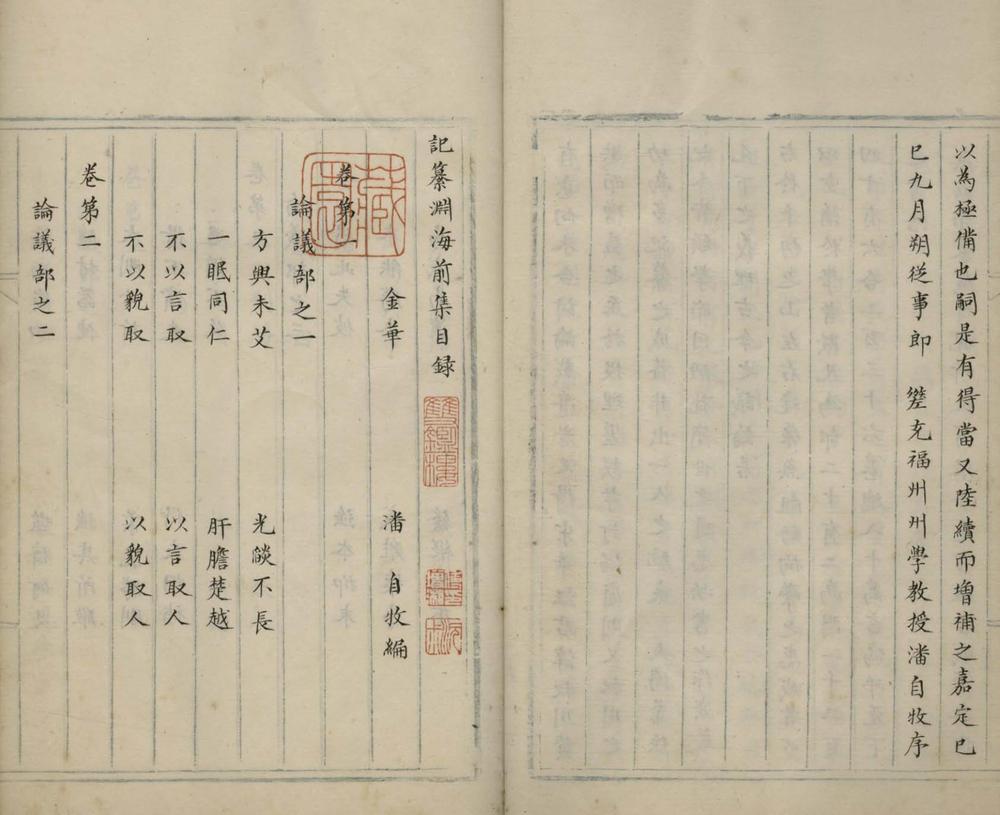 以為極備也嗣是有得當又陸續而增補之嘉定己
巳九月朔從事郎 差充福州州學教授潘自牧序
記纂淵海前集目録
雙鑑樓
金華 潘 自牧編
卷第一
論議部之一
方興未艾 光燄不長
一眠同仁 肝膽楚越
不以言取 以言取人
不以貌取 以貌取人
卷第二
論議部之二